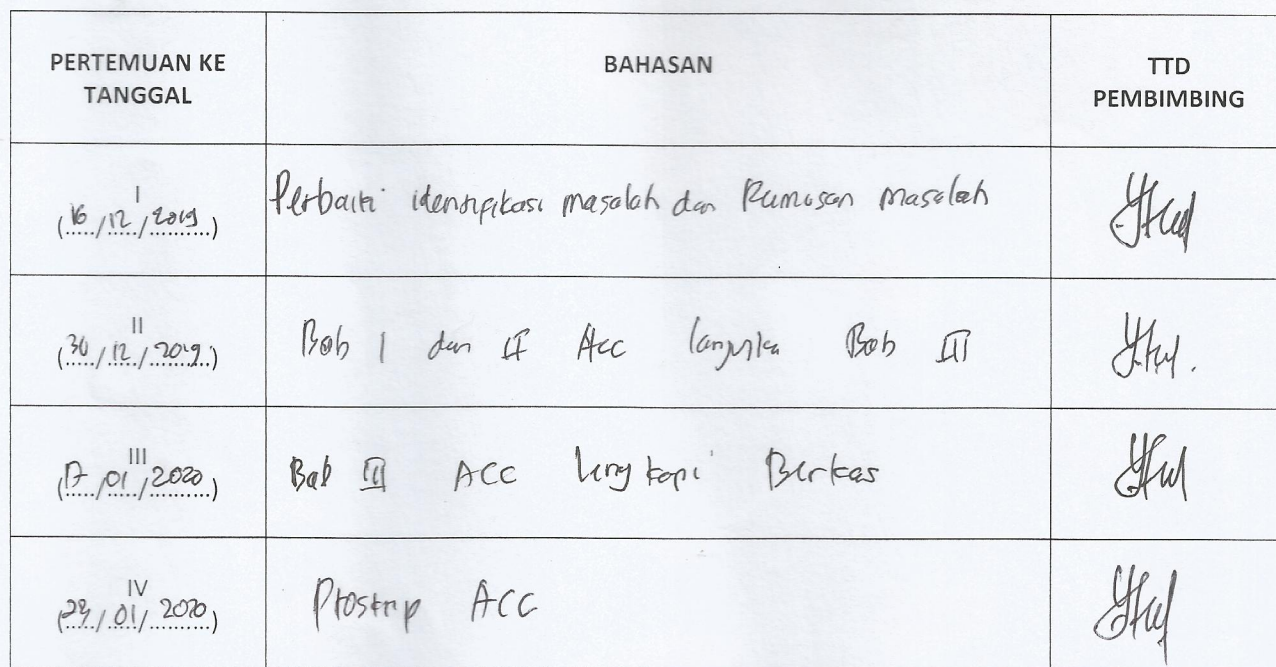 PERTEMUAN KE
TANGGAL
BAHASAN
TTD
PEMBIMBING
I
(16/12/2019)
Perbaiki identifikasi masalah dan Rumusan masalah
II
(30/12/2019)
Bab I dan II Acc Bab III
III
(17/01/2020)
Bab III ACC lengkapi Berkas
IV
(29/01/2020)
ACC